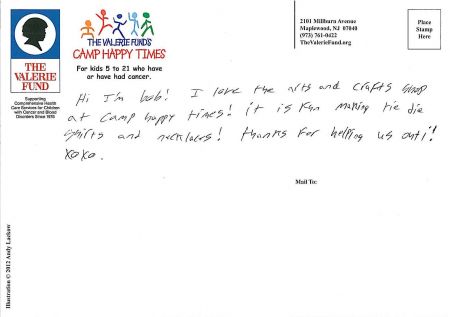 THE VALERIE FUND
Supporting
Comprehensive Health
Care Services for Children
with Cancer and Blood
Disorders Since 1976
THE VALERIE FUND'S
CAMP HAPPY TIMES
For kids 5 to 21 who have
or have had cancer.
2101 Millburn Avenue
Maplewood, NJ 07040
(973) 761-0422
TheValerieFund.org
Place
Stamp
Here
Hi I'm bob! I love the arts and crafts shop
at camp happy times! it is fun making tie die
shirts and necklaces! thanks for helping us out!!
xoxo.
Mail To:
Illustration © 2012 Andy Larkow